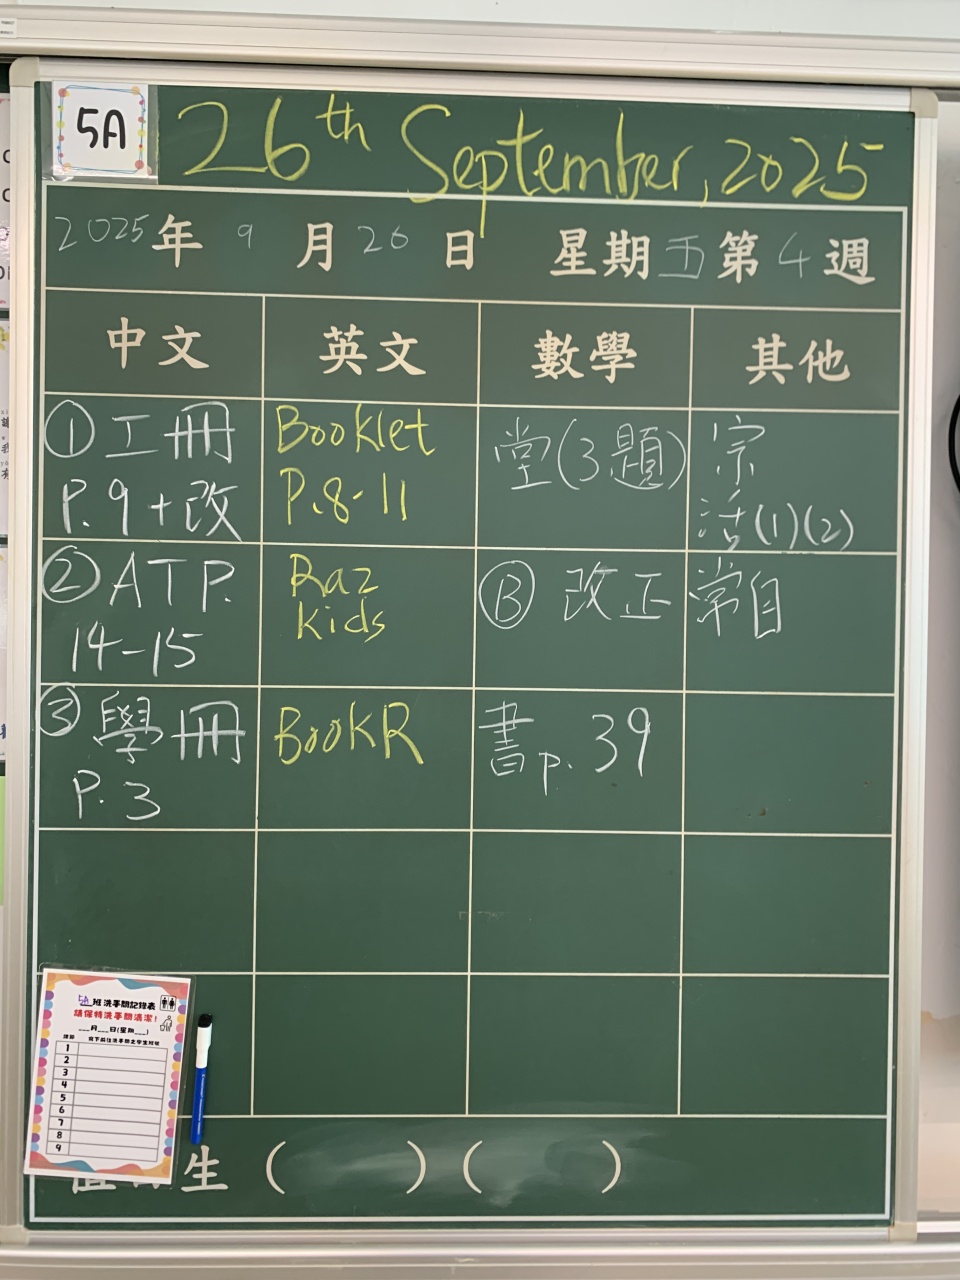 5A
26th September, 2025
2025年 9 月 26 日 星期五 第 4 週
中文 英文 數學 其他
① 工冊
P.9+改
Booklet
P.8-11
堂(3題)
宗
活(1)(2)
② ATP.
14-15
Raz
kids
Ⓑ 改正
常自
③ 學冊
P.3
BookR
書p.39
5A 班洗手間記錄表
請保持洗手間清潔!
___月___日(星期___)
1
2
3
4
5
6
7
8
9
生 ( ) ( )